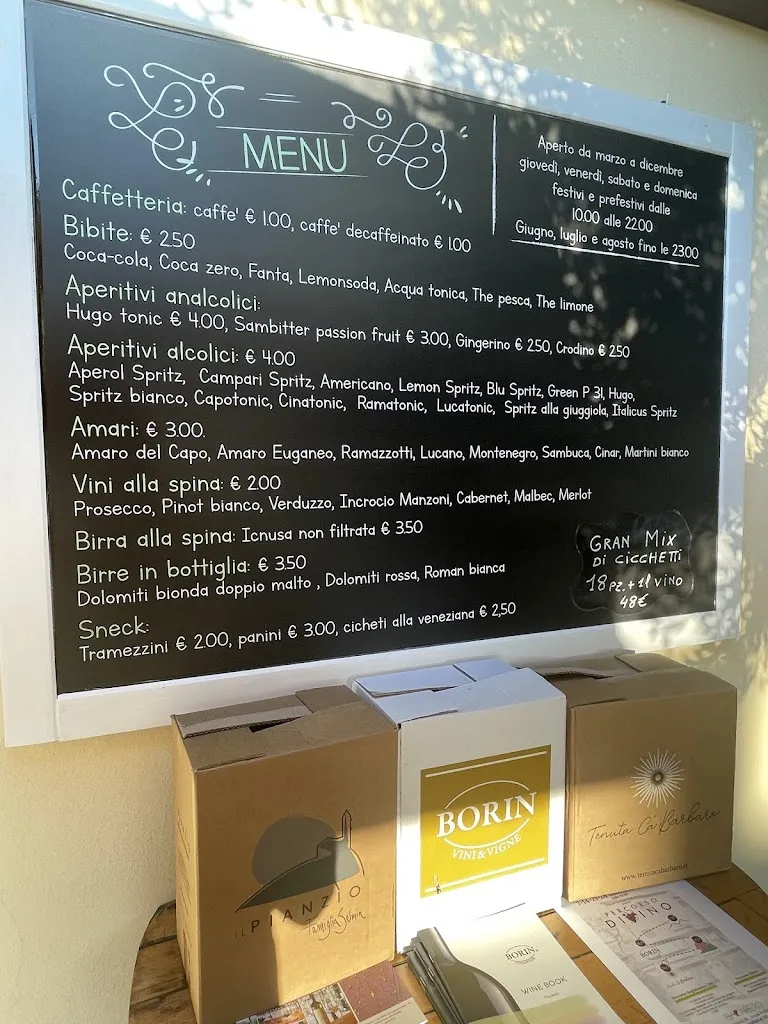 MENU
Aperto da marzo a dicembre
giovedì, venerdì, sabato e domenica
festivi e prefestivi dalle
10.00 alle 22.00
Giugno, luglio e agosto fino le 23.00
Caffetteria: caffe' € 1.00, caffe' decaffeinato € 1.00
Bibite: € 2.50
Coca-cola, Coca zero, Fanta, Lemonsoda, Acqua tonica, The pesca, The limone
Aperitivi analcolici:
Hugo tonic € 4.00, Sambitter passion fruit € 3.00, Gingerino € 2.50, Crodino € 2.50
Aperitivi alcolici: € 4.00
Aperol Spritz, Campari Spritz, Americano, Lemon Spritz, Blu Spritz, Green P 31, Hugo,
Spritz bianco, Capotonic, Cinatonic, Ramatonic, Lucatonic, Spritz alla giuggiola, Italicus Spritz
Amari: € 3.00.
Amaro del Capo, Amaro Euganeo, Ramazzotti, Lucano, Montenegro, Sambuca, Cinar, Martini bianco
Vini alla spina: € 2.00
Prosecco, Pinot bianco, Verduzzo, Incrocio Manzoni, Cabernet, Malbec, Merlot
Birra alla spina: Icnusa non filtrata € 3.50
Birre in bottiglia: € 3.50
Dolomiti bionda doppio malto , Dolomiti rossa, Roman bianca
Sneck:
Tramezzini € 2.00, panini € 3.00, cicheti alla veneziana € 2,50
GRAN MIX
DI CICCHETTI
18 PZ. + 1 l VINO
48€
IL PIANZIO
Famiglia Selmin
BORIN
VINI & VIGNE
Tenuta Ca' Barbaro
www.tenutacabarbaro.it
BORIN
WINE BOOK
PERCORSO
DIVINO
BORIN